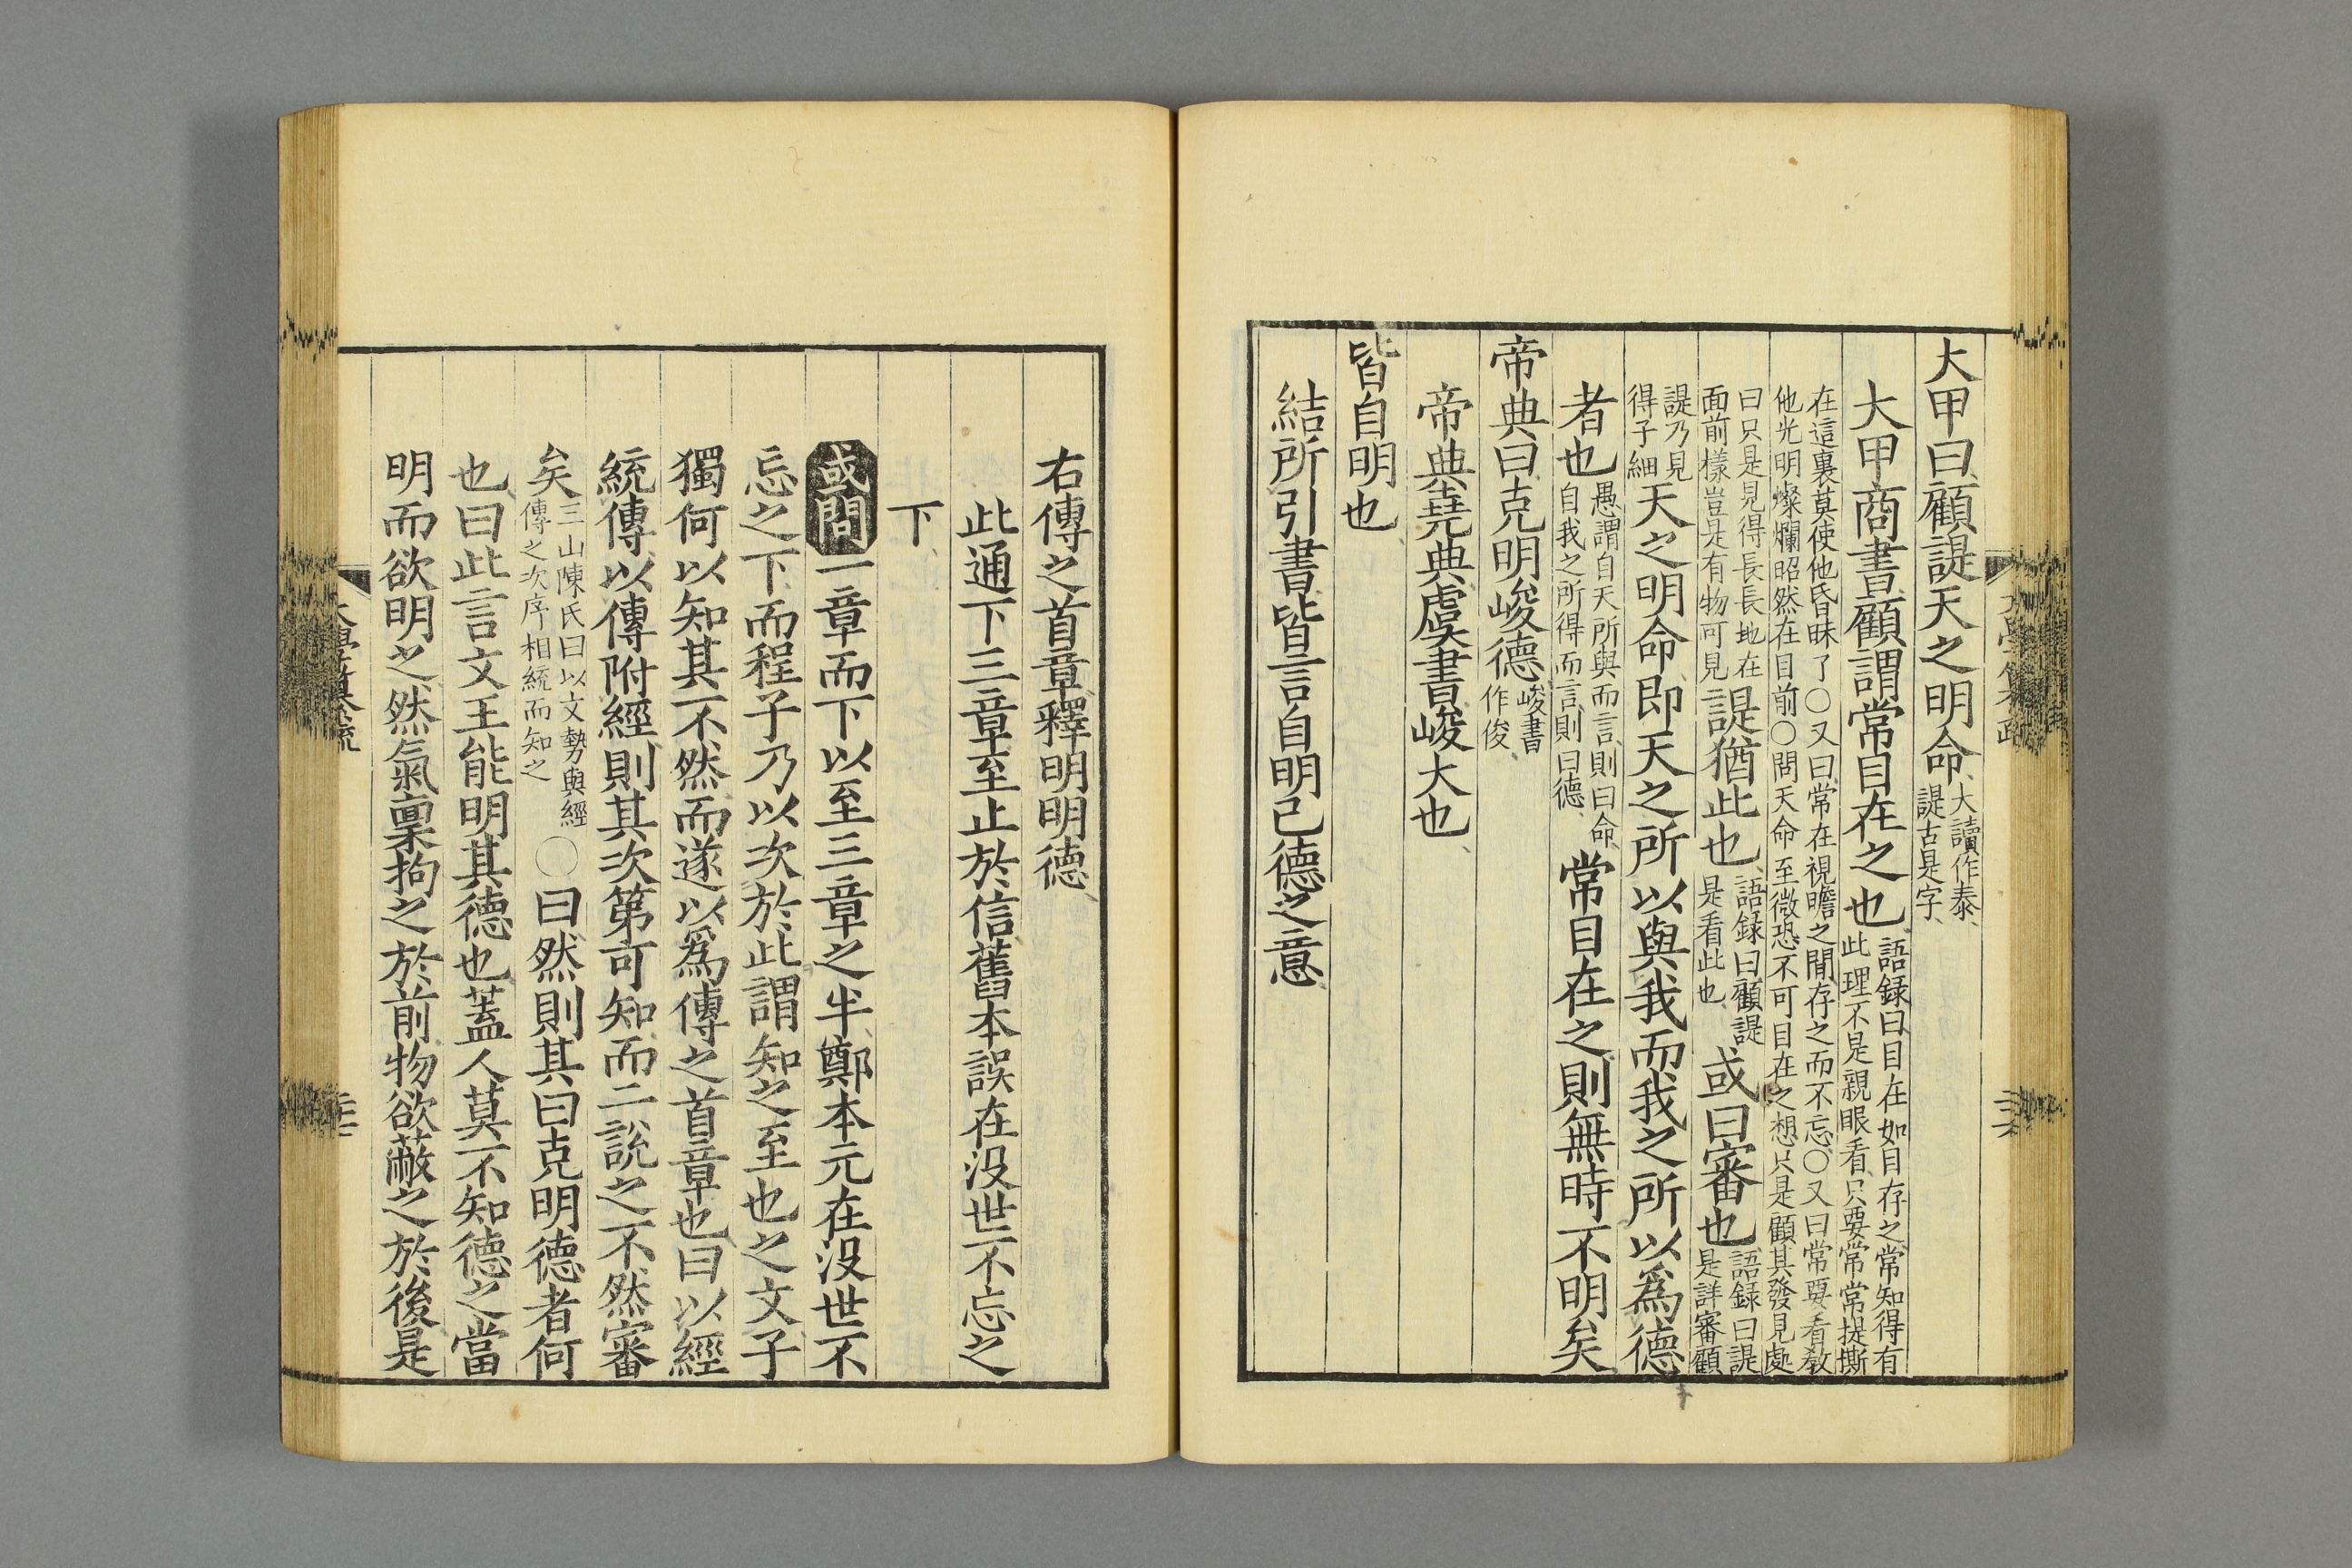 大甲曰顧諟天之明命大讀作泰諟古是字
大甲商書顧謂常目在之也語録曰目在如目存之常知得有此理不是親眼看只要常常提撕
在這裏莫使他昏昧了○又曰常在視瞻之間存之而不忘○又曰常要看敎他光明燦爛昭然在目前○問天命至微恐不可目在之想只是顧其發見處
曰只是見得長長地在面前樣豈是有物可見諟猶此也語録曰顧諟是看此也或曰審也語録曰諟是詳審顧
諟乃見得子細天之明命即天之所以與我而我之所以爲德
者也愚謂自天所與而言則曰命自我之所得而言則曰德常目在之則無時不明矣
帝典曰克明峻德峻書作俊
帝典堯典虞書峻大也
皆自明也
結所引書皆言自明己德之意
右傳之首章釋明明德
此通下三章至止於信舊本誤在没世不忘之
下
或問一章而下以至三章之半鄭本元在没世不
忘之下而程子乃以次於此謂知之至也之文子
獨何以知其不然而遂以爲傳之首章也曰以經
統傳以傳附經則其次第可知而二說之不然審
矣三山陳氏曰以文勢與經傳之次序相統而知之○曰然則其曰克明德者何
也曰此言文王能明其德也蓋人莫不知德之當
明而欲明之然氣稟拘之於前物欲蔽之於後是